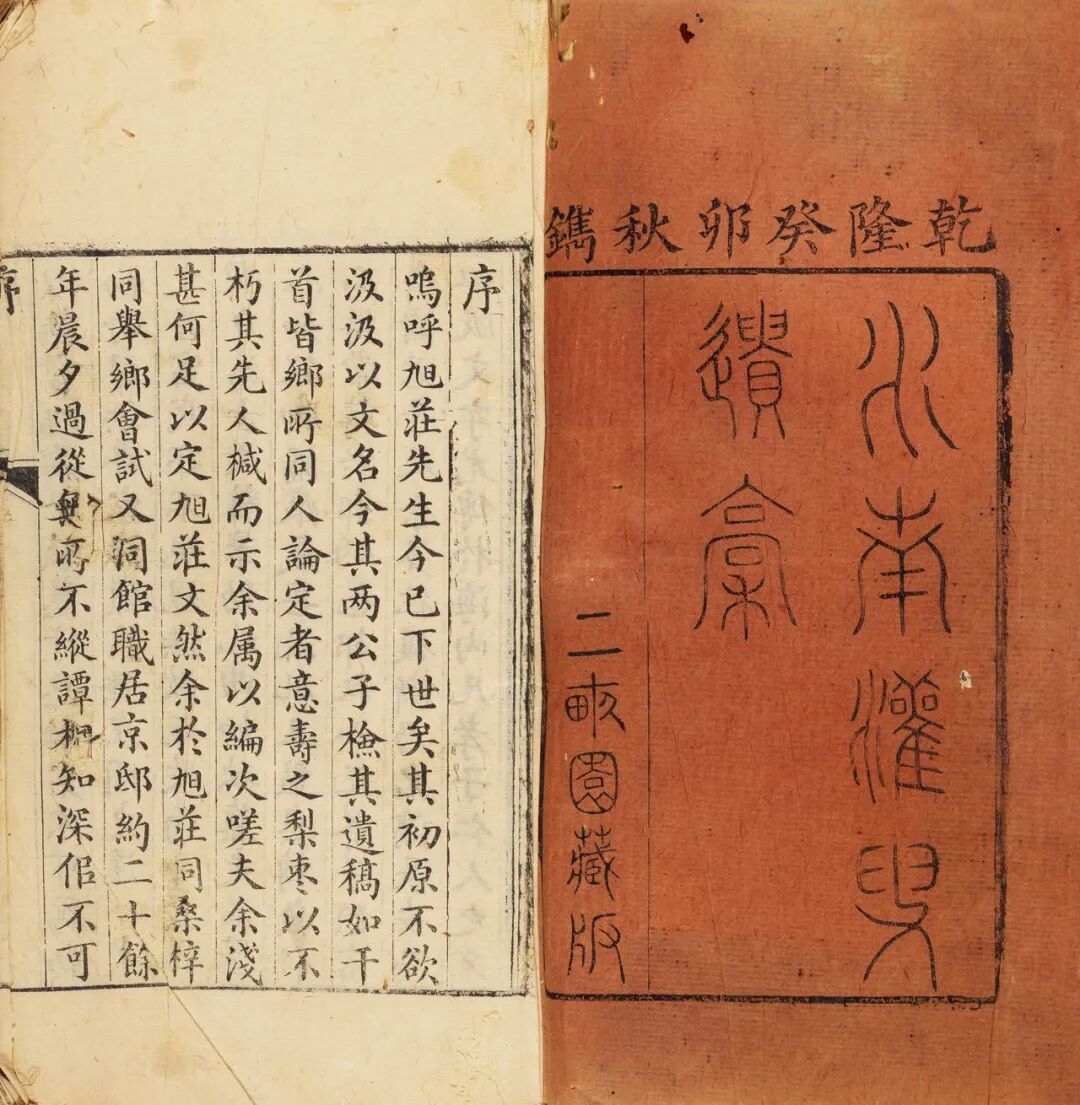 乾隆癸卯秋鐫
水南灌叟
遺稾
二畝園藏版
序
嗚呼旭莊先生今已下世矣其初原不欲
汲汲以文名今其两公子檢其遺稿如干
首皆鄉所同人論定者意壽之梨枣以不
朽其先人椷而示余属以編次嗟夫余淺
甚何足以定旭莊文然余於旭莊同桑梓
同舉鄉會試又洞館職居京邸約二十餘
年晨夕過從無所不縱譚相知深佀不可
序